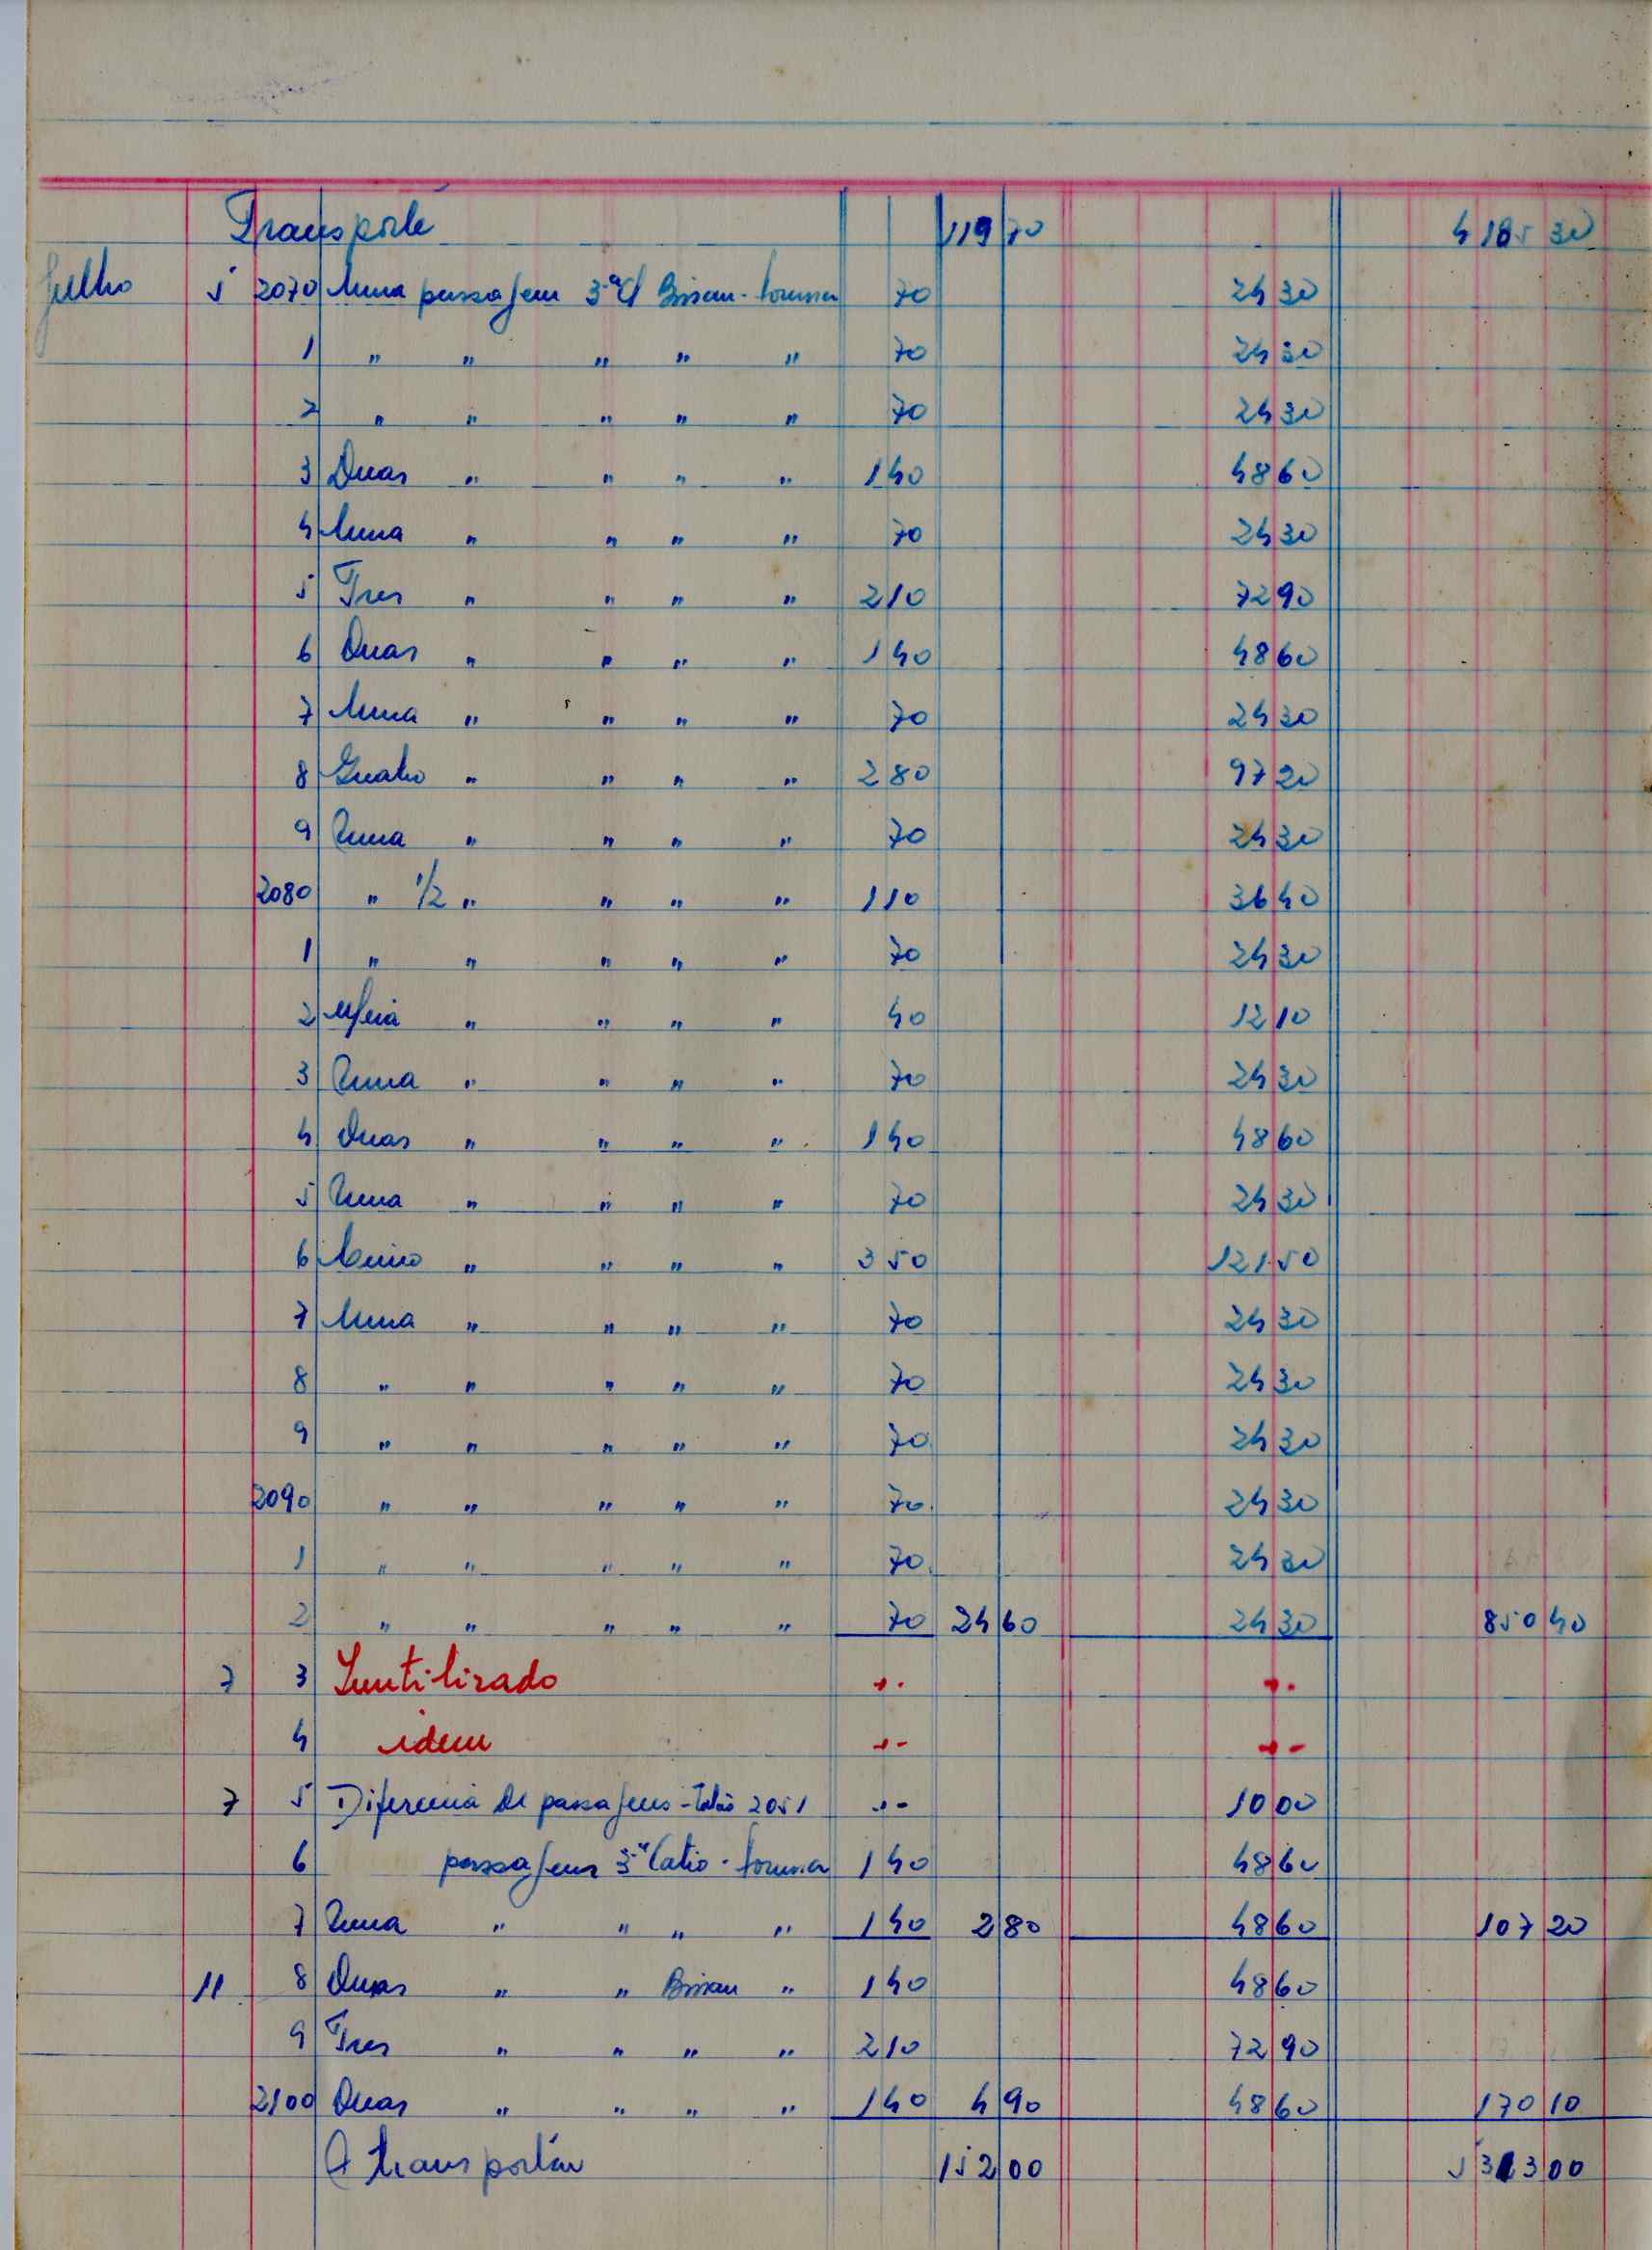 Transporte 119 70 4 185 30
Julho 5 2070 Uma passagem 3ª cl Bissau - 70 24 30
1 " " " " " 70 24 30
2 " " " " " 70 24 30
3 Duas " " " " 140 48 60
4 Uma " " " " 70 24 30
5 Tres " " " " 210 72 90
6 Duas " " " " 140 48 60
7 Uma " " " " 70 24 30
8 Quatro " " " " 280 97 20
9 Uma " " " " 70 24 30
2080 " 1/2 " " " " 110 36 40
1 " " " " " 70 24 30
2 Meia " " " " 40 12 10
3 Uma " " " " 70 24 30
4 Duas " " " " 140 48 60
5 Uma " " " " 70 24 30
6 Cinco " " " " 350 121 50
7 Uma " " " " 70 24 30
8 " " " " " 70 24 30
9 " " " " " 70 24 30
2090 " " " " " 70 24 30
1 " " " " " 70 24 30
2 " " " " " 70 24 60 24 30 850 40
7 3 Inutilizado " -
4 idem " -
7 5 Diferença de passagens - Talão 2051 " - 10 00
6 passagem 3ª Catio - 140 48 60
7 Uma " " " " 140 2 80 48 60 107 20
11 8 Duas " " Bissau " 140 48 60
9 Tres " " " " 210 72 90
2100 Duas " " " " 140 4 90 48 60 170 10
A transportar 152 00 5 313 00